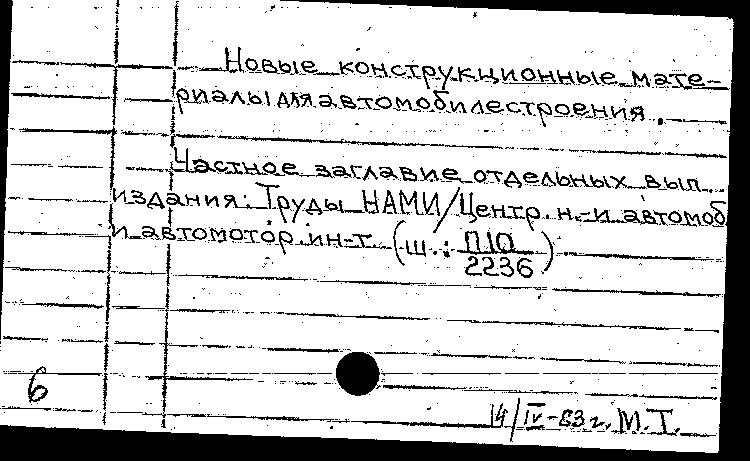 Новые конструкционные мате-
риалы для автомобилестроения.
Частное заглавие отдельных вып.
издания: Труды НАМИ/Центр. н.-и. автомоб
и автомотор. ин-т. (ш.: П10/2236)
6
14/IV-83г. М.Т.